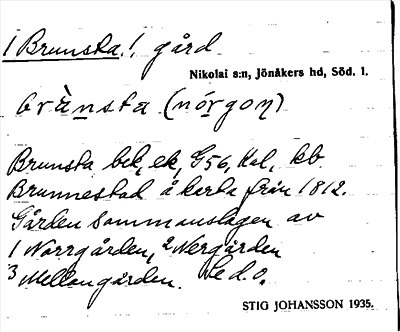 1 Brunsta, 1, gård
Nikolai s:n, Jönåkers hd, Söd. l.
(nórgoŋ)
Brunsta bek, ek, G56, Kal, kb
Brunnestad å karta från 1812.
Gården sammanslagen av
1 Norrgården, 2 Nergården
3 Mellangården. Se d.o.
STIG JOHANSSON 1935.